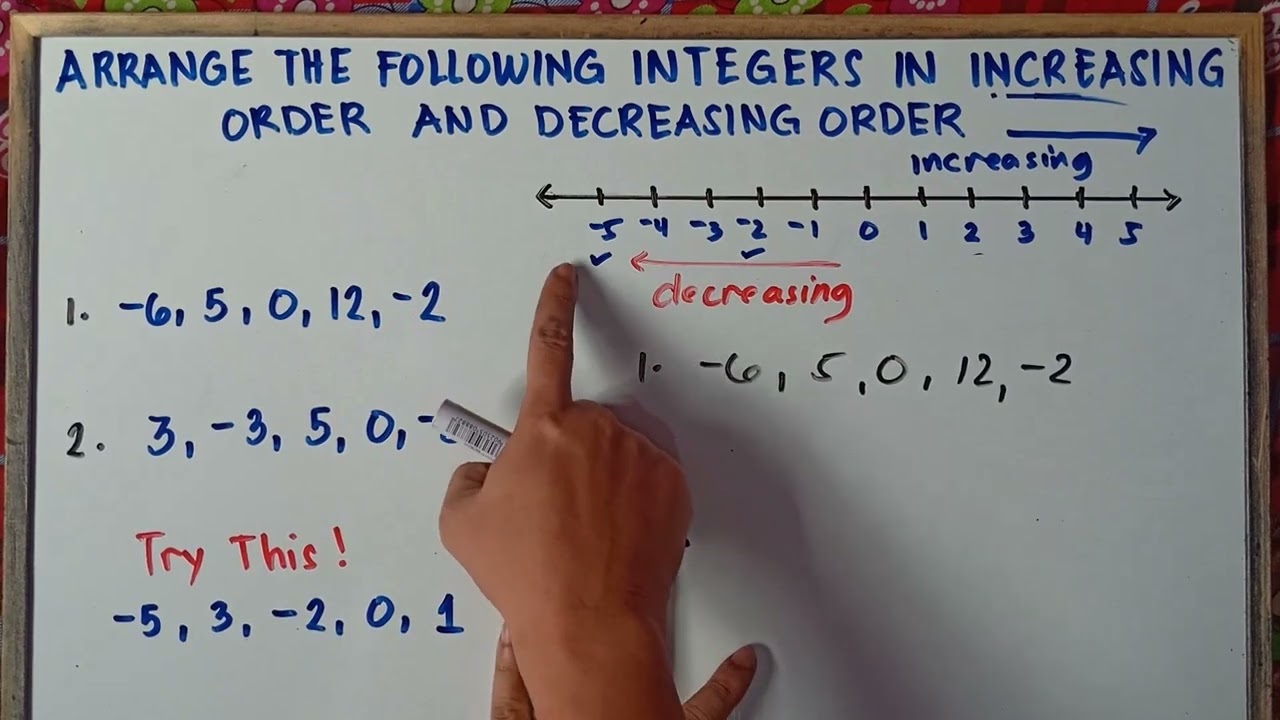 ARRANGE THE FOLLOWING INTEGERS IN INCREASING
ORDER AND DECREASING ORDER
increasing
-5 -4 -3 -2 -1 0 1 2 3 4 5
decreasing
1. -6, 5, 0, 12, -2
1. -6, 5, 0, 12, -2
2. 3, -3, 5, 0,
Try This!
-5, 3, -2, 0, 1